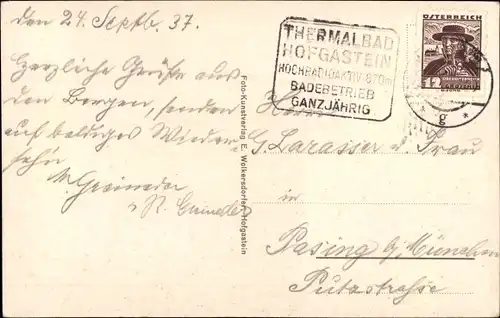 den 24. Septb. 37.
Herzliche Grüße aus
den Bergen, senden
auf baldiges Wieder-
sehn
Foto-Kunstverlag E. Wolkersdorfer, Hofgastein
THERMALBAD
HOFGASTEIN
HOCHRADIOAKTIV 870m
BADEBETRIEB
GANZJÄHRIG
ÖSTERREICH
* g *
Herrn
G. Larasser u. Frau
in
Pasing b/ München
Putastrasse